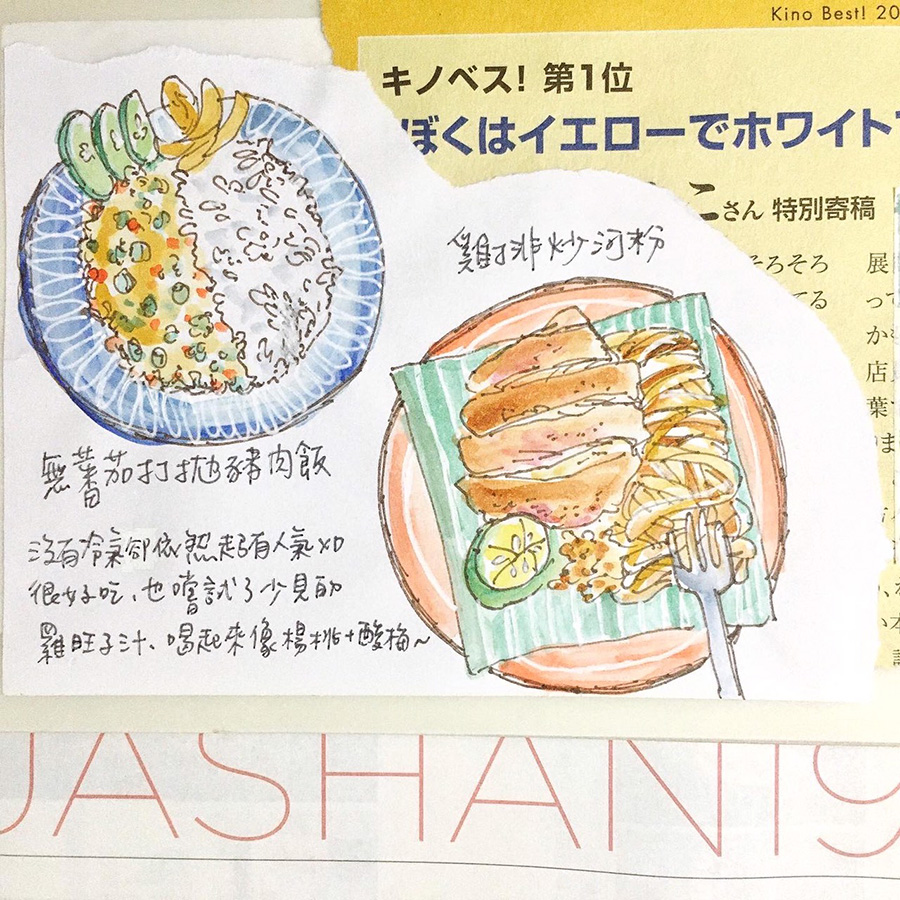 Kino Best! 20
キノベス! 第1位
ぼくはイエローでホワイトで
こさん 特別寄稿
そろそろ
てる
展
って
かも
店
葉
雞排炒河粉
無蕃茄打拋豬肉飯
沒有冷氣卻依然超有人氣XD
很好吃、也嚐試了少見的
羅旺子汁、喝起來像楊桃+酸梅~
JASHAN19